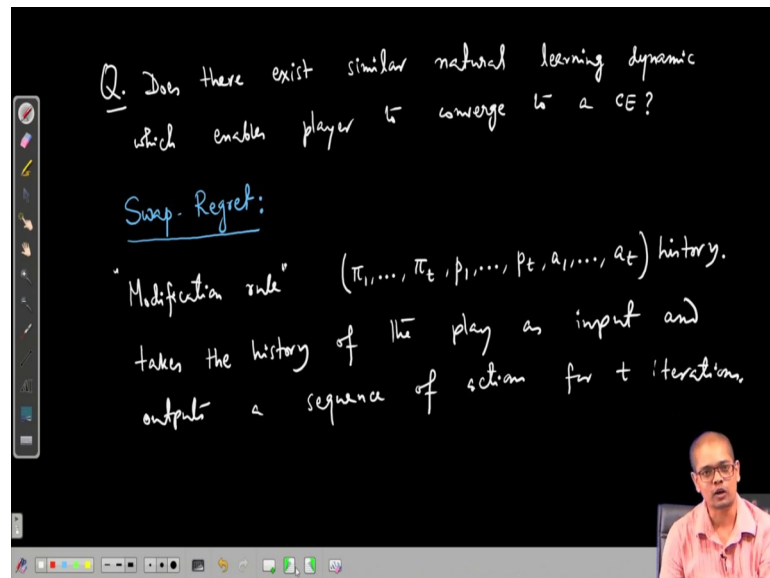 Q. Does there exist similar natural learning dynamic
which enables player to converge to a CE?
Swap-Regret:
"Modification rule" (π₁,..., π_t, p₁,..., p_t, a₁,..., a_t) history.
takes the history of the play as input and
outputs a sequence of action for t iterations.